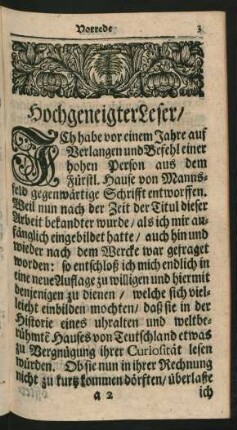 Vorrede 3
Hochgeneigter Leser/
ICh habe vor einem Jahre auf
Verlangen und Befehl einer
hohen Person aus dem
Fürstl. Hause von Manns-
feld gegenwärtige Schrifft entworffen.
Weil nun nach der Zeit der Titul dieser
Arbeit bekandter wurde/ als ich mir an-
fänglich eingebildet hatte/ auch hin und
wieder nach dem Wercke war gefraget
worden: so entschloß ich mich endlich in
eine neue Auflage zu willigen und hiermit
denjenigen zu dienen/ welche sich viel-
leicht einbilden mochten/ daß sie in der
Historie eines uhralten und weltbe-
rühmtē Hauses von Teutschland etwas
zu Vergnügung ihrer Curiosität lesen
würden. Ob sie nun in ihrer Rechnung
nicht zu kurtz kommen dörfften/ überlasse
a 2 ich